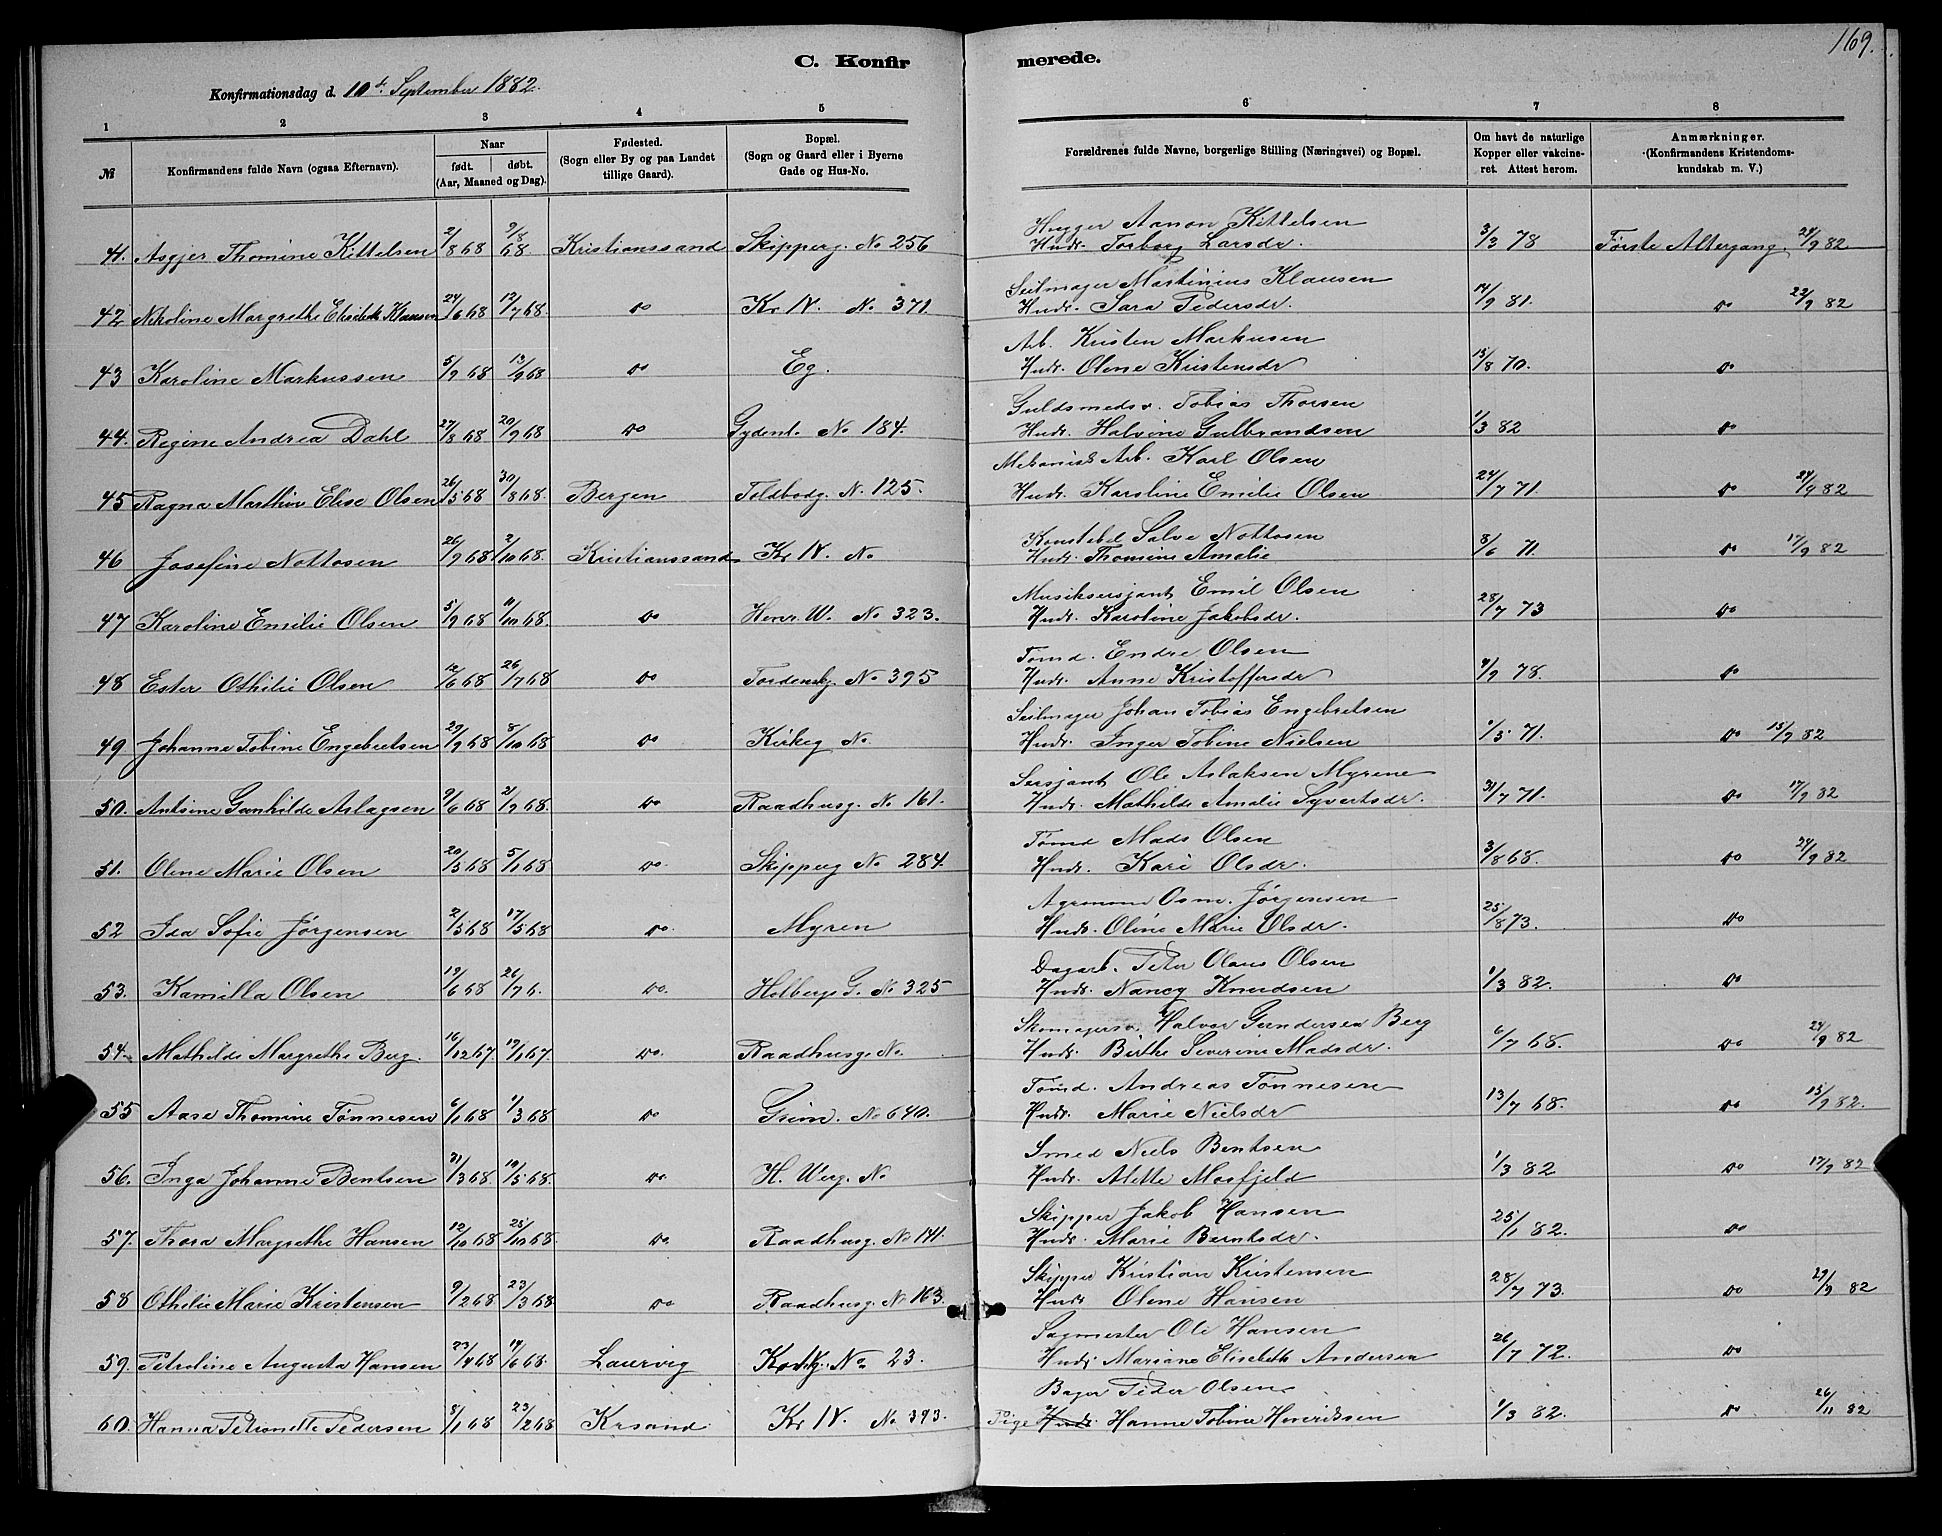 169.
C. Konfirmerede.
Konfirmationsdag d. 10d. September 1882.
1 2 3 4 5 6 7 8
№ Konfirmandens fulde Navn (ogsaa Efternavn). Naar født. døbt. (Aar, Maaned og Dag). Fødested. (Sogn eller By og paa Landet tillige Gaard). Bopæl. (Sogn og Gaard eller i Byerne Gade og Hus-No. Forældrenes fulde Navne, borgerlige Stilling (Næringsvei) og Bopæl. Om havt de naturlige Kopper eller vakcineret. Attest herom. Anmærkninger. (Konfirmandens Kristendomskundskab m. V.)
Hugger Aanon Kittelsen
41. Asgjer Thomine Kittelsen 2/8 68 9/8 68 Kristianssand Skipperg. No 256 Hudr. Torborg Larsdr. 3/3 78 Første Altergang. 24/9 82
Seilmager Martinius Klausen
42 Nikoline Margrethe Elisabeth Klausen 24/6 68 12/7 68. do Kr. IV. No 371. Hudr. Sara Pedersdr. 14/9 81. do 23/9 82
Arb. Kristen Markusen
43 Karoline Markussen 5/9 68 13/9 68 do Eg. Hudr. Olene Kristensdr 15/8 70. do
Guldsmedsv. Tobias Thorsen
44. Regine Andrea Dahl 27/8 68 20/9 68 do Gydent. No 184. Hudr. Halvine Gulbrandsen 1/3 82 do
Mekanisk Arb. Karl Olsen
45 Ragna Marthin Elise Olsen 26/5 68 30/8 68. Bergen Toldbodg. N. 125. Hudr. Karoline Emilie Olsen 24/7 71. do 24/9 82
Konstabel Salve Nottosen
46 Josefine Nottosen 26/9 68 2/10 68. Kristianssand Kr. IV. No Hudr. Thomine Amelie 3/6 71 do 17/9 82
Musiksersjant Emil Olsen
47 Karoline Emilie Olsen 5/9 68 11/10 68. do Henr. W. No 323. Hudr. Karoline Jakobsdr. 28/7 73 do
Tømd. Endre Olsen
48 Ester Othilie Olsen 12/6 68 26/7 68 do Tordenskj. No 395 Hudr. Anne Kristoffersdr 9/9 78. do
Seilmager Johan Tobias Engebretsen
49 Johanne Tobine Engebretsen 29/9 68 8/10 68 do Kirkeg No Hudr. Inger Tobine Nielsen 1/5 71. do 15/9 82
Sersjant Ole Aslaksen Myrene
50. Antsine Gunhilde Aslagsen 9/6 68 21/9 68. do Raadhusg. No 161. Hudr. Mathilde Amalie Syvertsdr. 31/7 71. do 17/9 82
Tømd Mads Olsen
51. Olene Marie Olsen 20/3 68 5/1 68 do. Skipperg No 284. Hudr. Kari Olsdr. 3/8 68. do 24/9 82
Agronom Osm. Jørgensen
52 Ida Sofie Jørgensen 2/3 68 17/5 68 do. Myren Hudr. Oline Marie Olsdr. 25/8 73. do
Dagarb. Peter Olaus Olsen
53. Kamilla Olsen 19/6 68 26/7 6. do. Holbergs G. No 325 Hudr. Nancy Knudsen 1/3 82. do
Skomagersv. Halvor Gundersen Berg
54. Mathilde Margrethe Berg. 16/12 67 19/1 67. do. Raadhusg. No. Hudr. Birthe Severine Madsdr. 6/7 68. do 24/9 82
Tømd. Andreas Tønnesen
55 Aase Thomine Tønnesen 6/1 68 1/3 68 do Grim. No 640. Hudr. Marie Nielsdr 13/7 68. do 15/9 82.
Smed Niels Bentsen
56. Inga Johanne Bentsen 21/3 68. 10/5 68. do. H. Werg. No Hudr. Alette Mosfjeld 1/3 82 do 17/9 82
Skipper Jakob Hansen
57. Thora Margrethe Hansen 12/10 68 25/10 68. do. Raadhusg. No 141. Hudr. Marie Berntsdr. 25/1 82. do
Skipper Kristian Kristensen
58 Othilie Marie Kristensen 9/2 68 23/3 68 do. Raadhusg. No 163. Hudr Olene Hansen 28/7 73. do 29/9 82
Sagmester Ole Hansen
59. Petroline Augusta Hansen 23/4 68 14/6 68. Laurvig No 23. Hudr Mariane Elisabeth Andersen 26/7 72. do
Bager Peder Olsen
60. Hanna Petronette Pedersen 8/1 68 23/2 68 Krsand Kr. IV. No 393. Pige Hudr. Hanne Tobine Henriksen 1/3 82. do 26/11 82